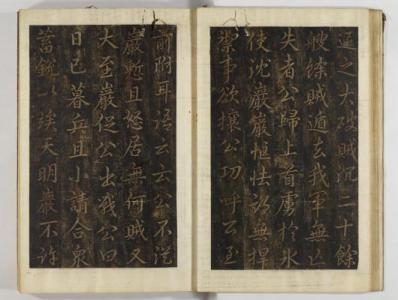 逗之大破賊沉二十餘
艘餘賊遁去我軍無亡
失者公歸上首虜於水
使沈巖巖恇怯訥無捍
禦事欲攘公功呼公至
前附耳語云云公不従
巖慙且怒居無何賊又
大至巖促公出戰公曰
日已暮兵且小請合衆
蓄銳以
天明巖不許